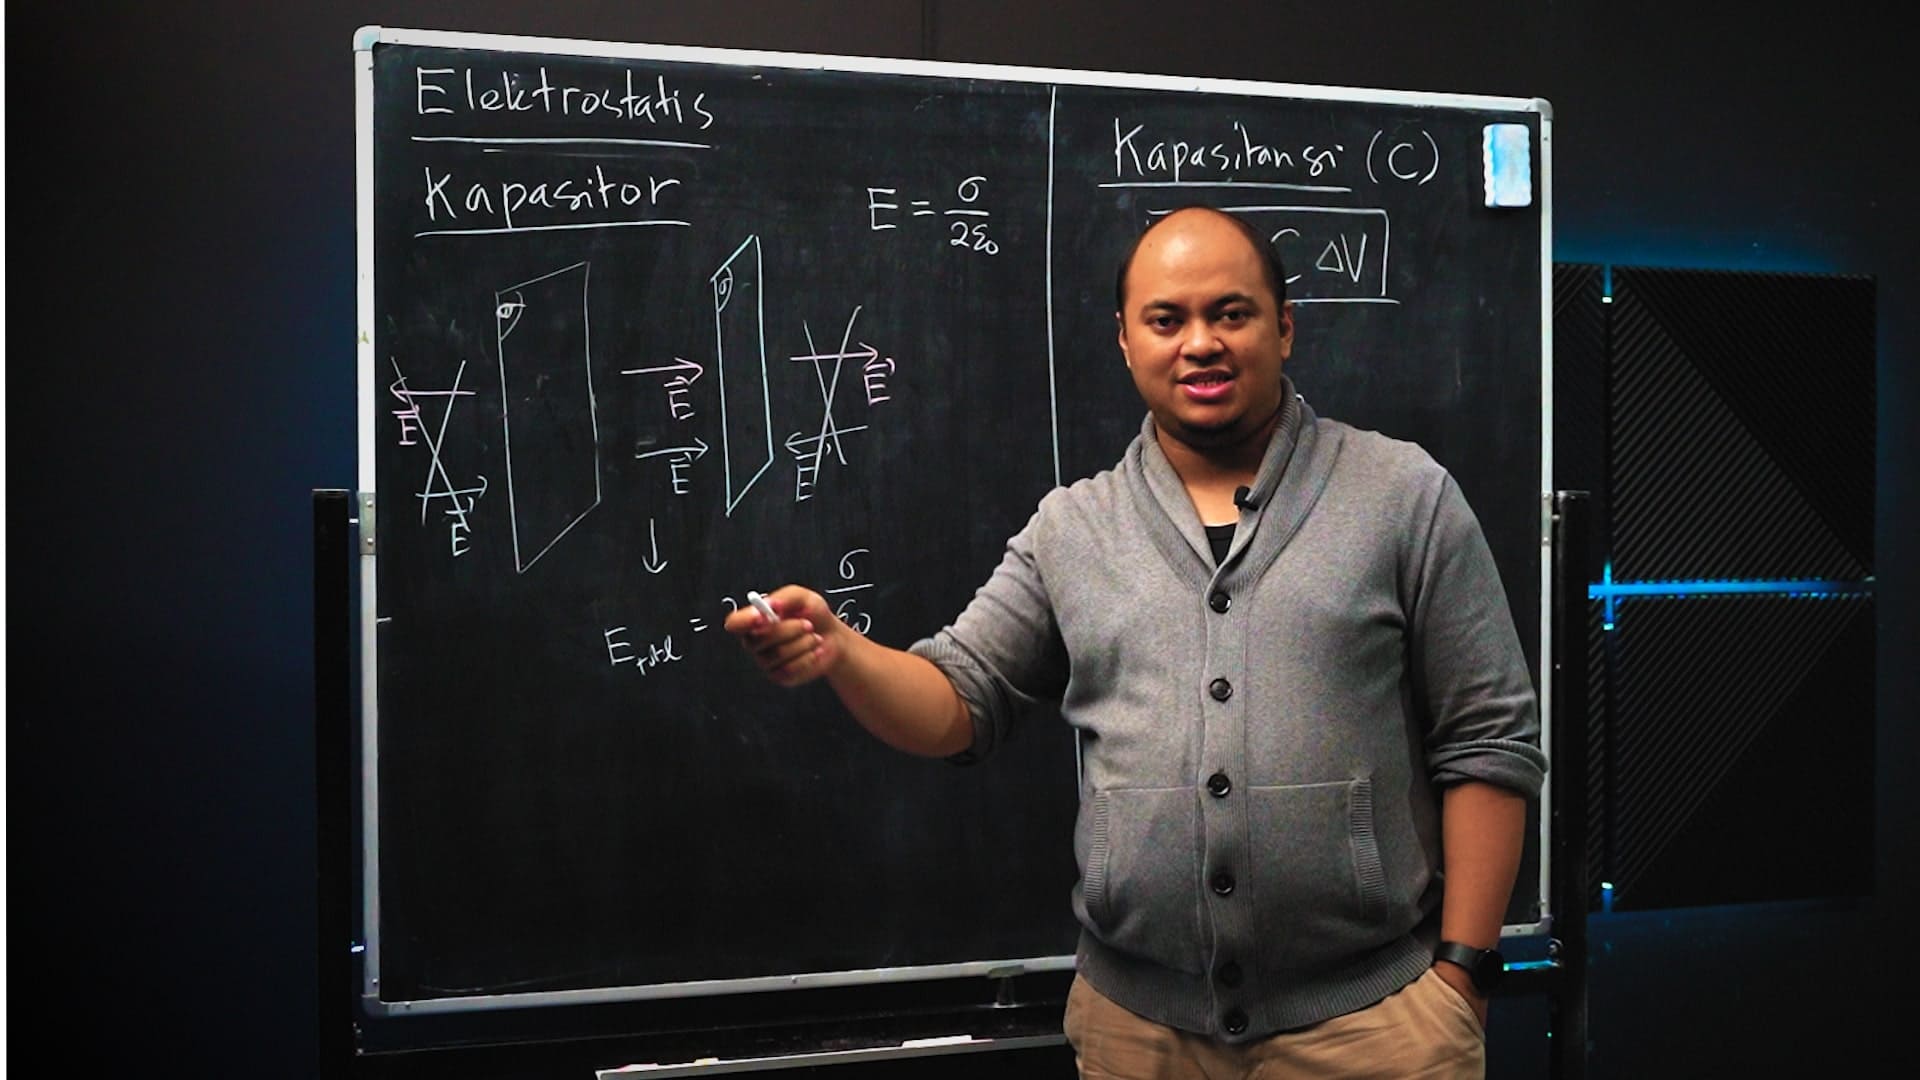 Elektrostatis
Kapasitor
E = σ / 2ε₀
σ
σ
E⃗
E⃗
E⃗
E⃗
E⃗
E⃗
E total =
σ / ε₀
Kapasitansi (C)
C ΔV